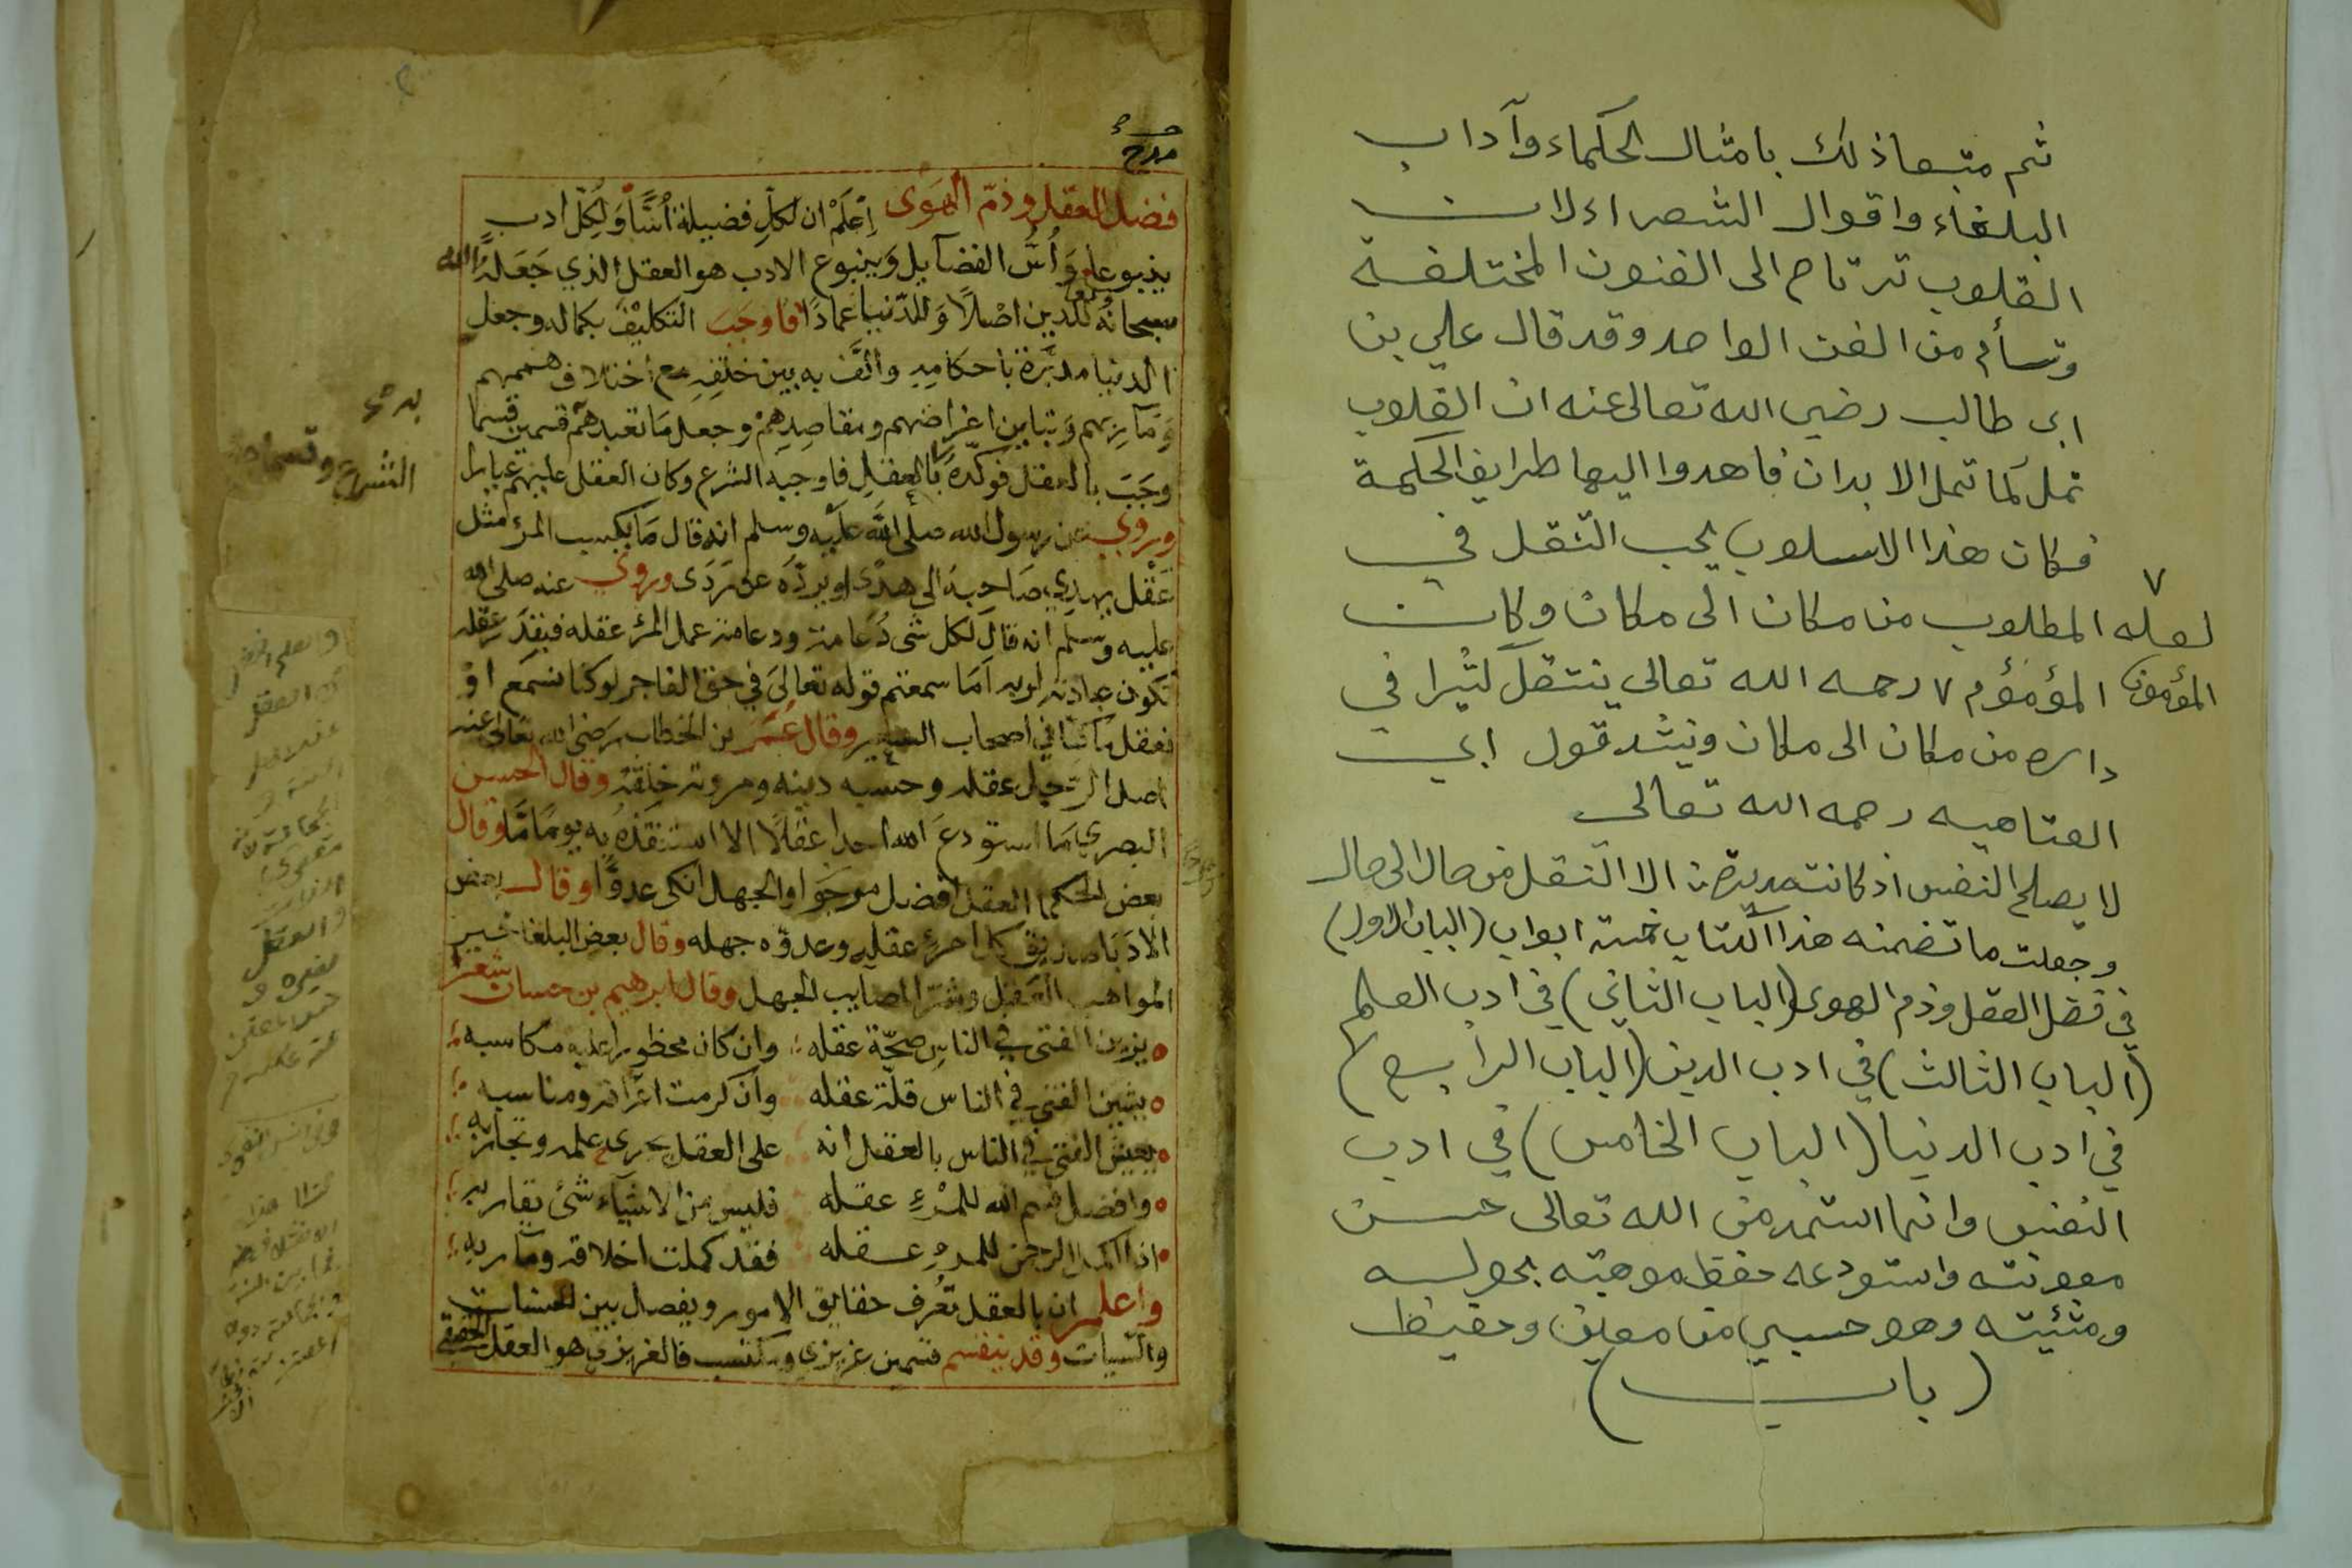 ثم متبعا ذلك بامثال الحكماء وآداب
البلغاء واقوال الشعراء لان
القلوب ترتاح الى الفنون المختلفة
وتسأم من الفن الواحد وقد قال علي بن
ابى طالب رضي الله تعالى عنه ان القلوب
تمل كما تمل الابدان فاهدوا اليها طرايف الحكمة
فكان هذا الاسلوب يحب التنقل في
المطلوب من مكان الى مكان وكان
المؤمؤم ٧ رحمه الله تعالى ينتقل كثيرا في
داره من مكان الى مكان وينشد قول ابي
العتاهيه رحمه الله تعالى
لا يصلح النفس اذ كانت مدبرة الا التنقل من حال الى حال
وجعلت ما تضمنه هذا الكتاب خمسة ابواب (الباب الاول)
في فضل العقل وذم الهوى (الباب الثاني) في ادب العلم
(الباب الثالث) في ادب الدين (الباب الرابع)
في ادب الدنيا (الباب الخامس) في ادب
النفس وانما استمد من الله تعالى حسن
معونته واستودعه حفظ موهبته بحوله
ومشئيته وهو حسبي من معين وحفيظ
(باب)
٧
لعله
المؤمون
فضل العقل وذم الهوى اعلم ان لكل فضيلة أسًّا ولكل ادب
ينبوعا وأس الفضايل وينبوع الادب هو العقل الذي جعله الله
سبحانه للدين اصلا وللدنيا عمادا فاوجب التكليف بكماله وجعل
الدنيا مدبرة باحكامه والف به بين خلقه مع اختلاف هممهم
ومآربهم وتباين اغراضهم ومقاصدهم وجعل ما تعبدهم قسمين قسما
وجب بالعقل فوكده بالعقل فاوجبه الشرع وكان العقل عليهم عيارا
وروي عن رسول الله صلى الله عليه وسلم انه قال ما يكسب المرء مثل
عقل يهدي صاحبه الى هدى او يرده عن ردى وروي عنه صلى الله
عليه وسلم انه قال لكل شئ دعامة ودعامة عمل المرء عقله فبقدر عقله
تكون عبادته لربه اما سمعتم قوله تعالى في حق الفاجر لوكنا نسمع او
نعقل ما كنا في اصحاب السعير وقال عمر بن الخطاب رضي الله تعالى عنه
اصل الرجل عقله وحسبه دينه ومروته خلقه وقال الحسن
البصري ما استودع الله احدا عقلا الا استنقذه به يوما ما وقال
بعض الحكما العقل افضل مرجوا والجهل انكى عدوًّا وقال بعض
الادبا صديق كل امرئ عقله وعدوه جهله وقال بعض البلغا خير
المواهب العقل وشر المصايب الجهل وقال ابرهيم بن حسان شعر
يزين الفتى في الناس صحة عقله وان كان محظورا عليه مكاسبه
يشين الفتى في الناس قلة عقله وان كرمت اعراقه ومناسبه
يعيش الفتى في الناس بالعقل انه على العقل يجرى علمه وتجاربه
وافضل قسم الله للمرء عقله فليس من الاشياء شئ يقاربه
اذا اكمل الرحمن للمرء عقله فقد كملت اخلاقه ومآربه
واعلم ان بالعقل تعرف حقايق الامور ويفصل بين الحسنات
والسيات وقد ينقسم قسمين غريزي ومكتسب فالغريزي هو العقل الحقيقي